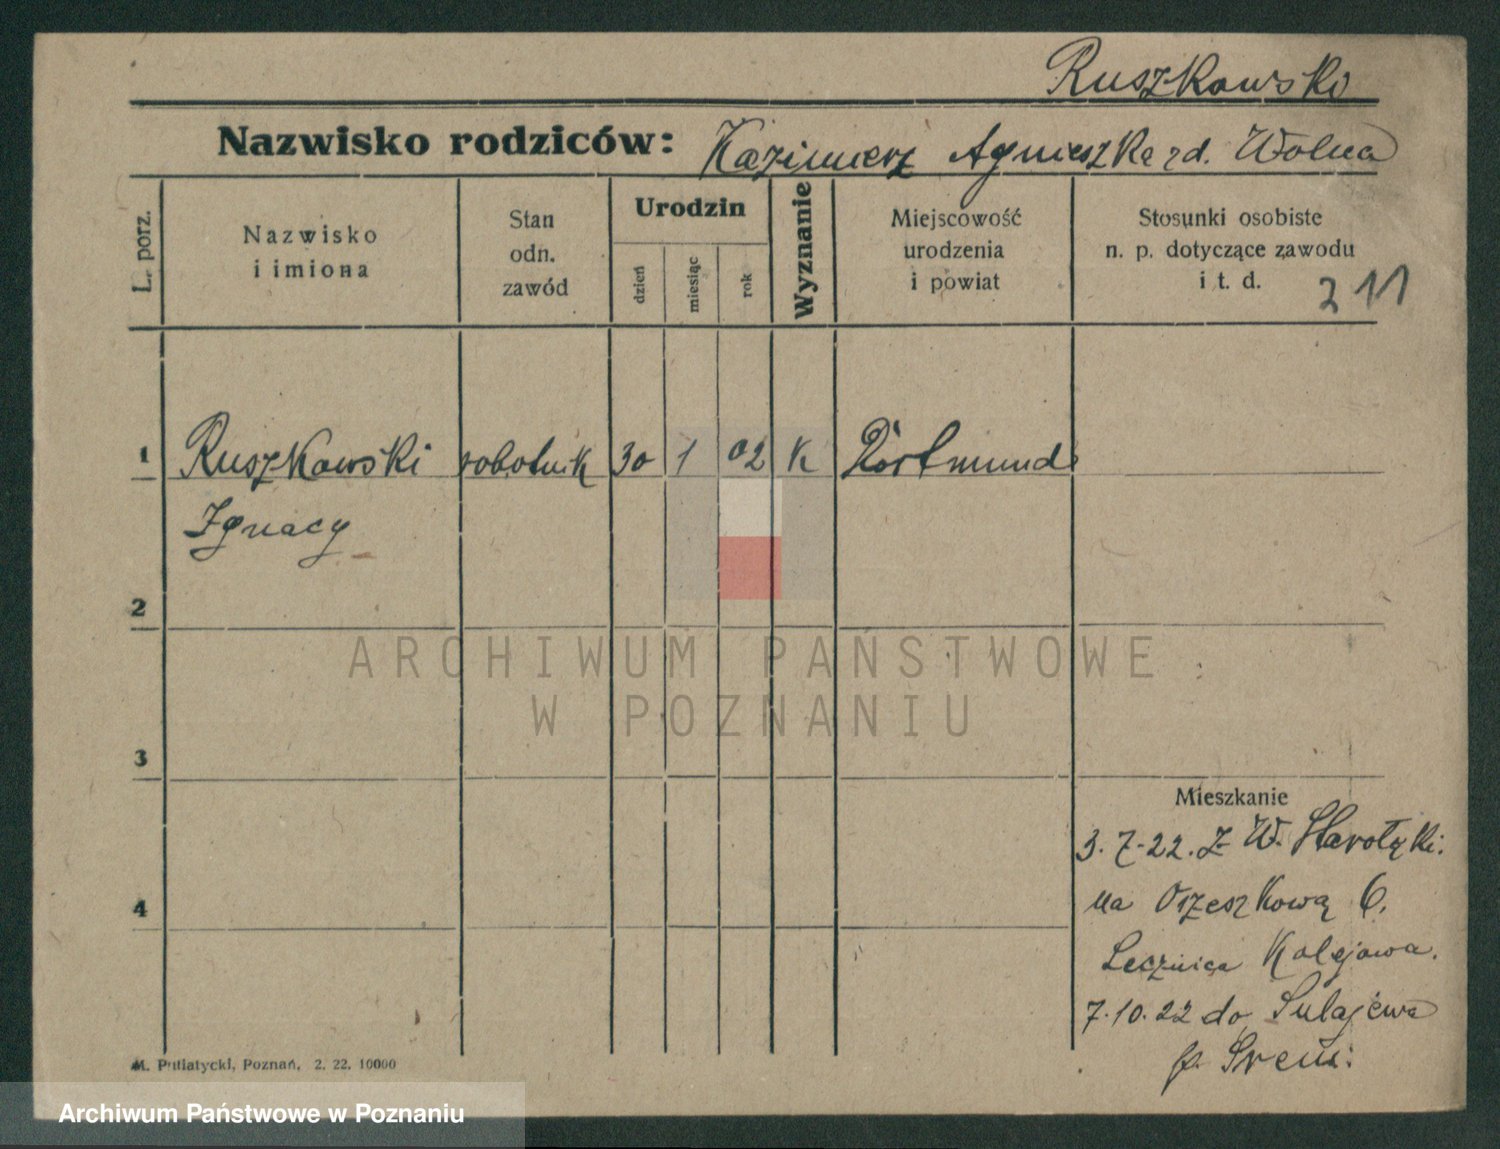 Ruszkowski
Nazwisko rodziców: Kazimierz Agnieszka zd. Wolna
L. porz.
Nazwisko
i imiona
Stan
odn.
zawód
Urodzin
dzień
miesiąc
rok
Wyznanie
Miejscowość
urodzenia
i powiat
Stosunki osobiste
n. p. dotyczące zawodu
i t. d.
211
1 Ruszkowski robotnik 30 1 02 K Dortmund
Ignacy
2
ARCHIWUM PAŃSTWOWE
W POZNANIU
3
Mieszkanie
3.7.22. z W. Starołęki.
4
na Orzeszkową 6.
Lecznica Kolejowa.
7.10.22 do
p. Śrem.
M. Putiatycki, Poznań, 2. 22. 10000
Archiwum Państwowe w Poznaniu